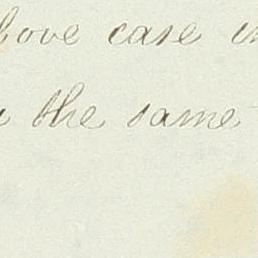 bove case in
the same